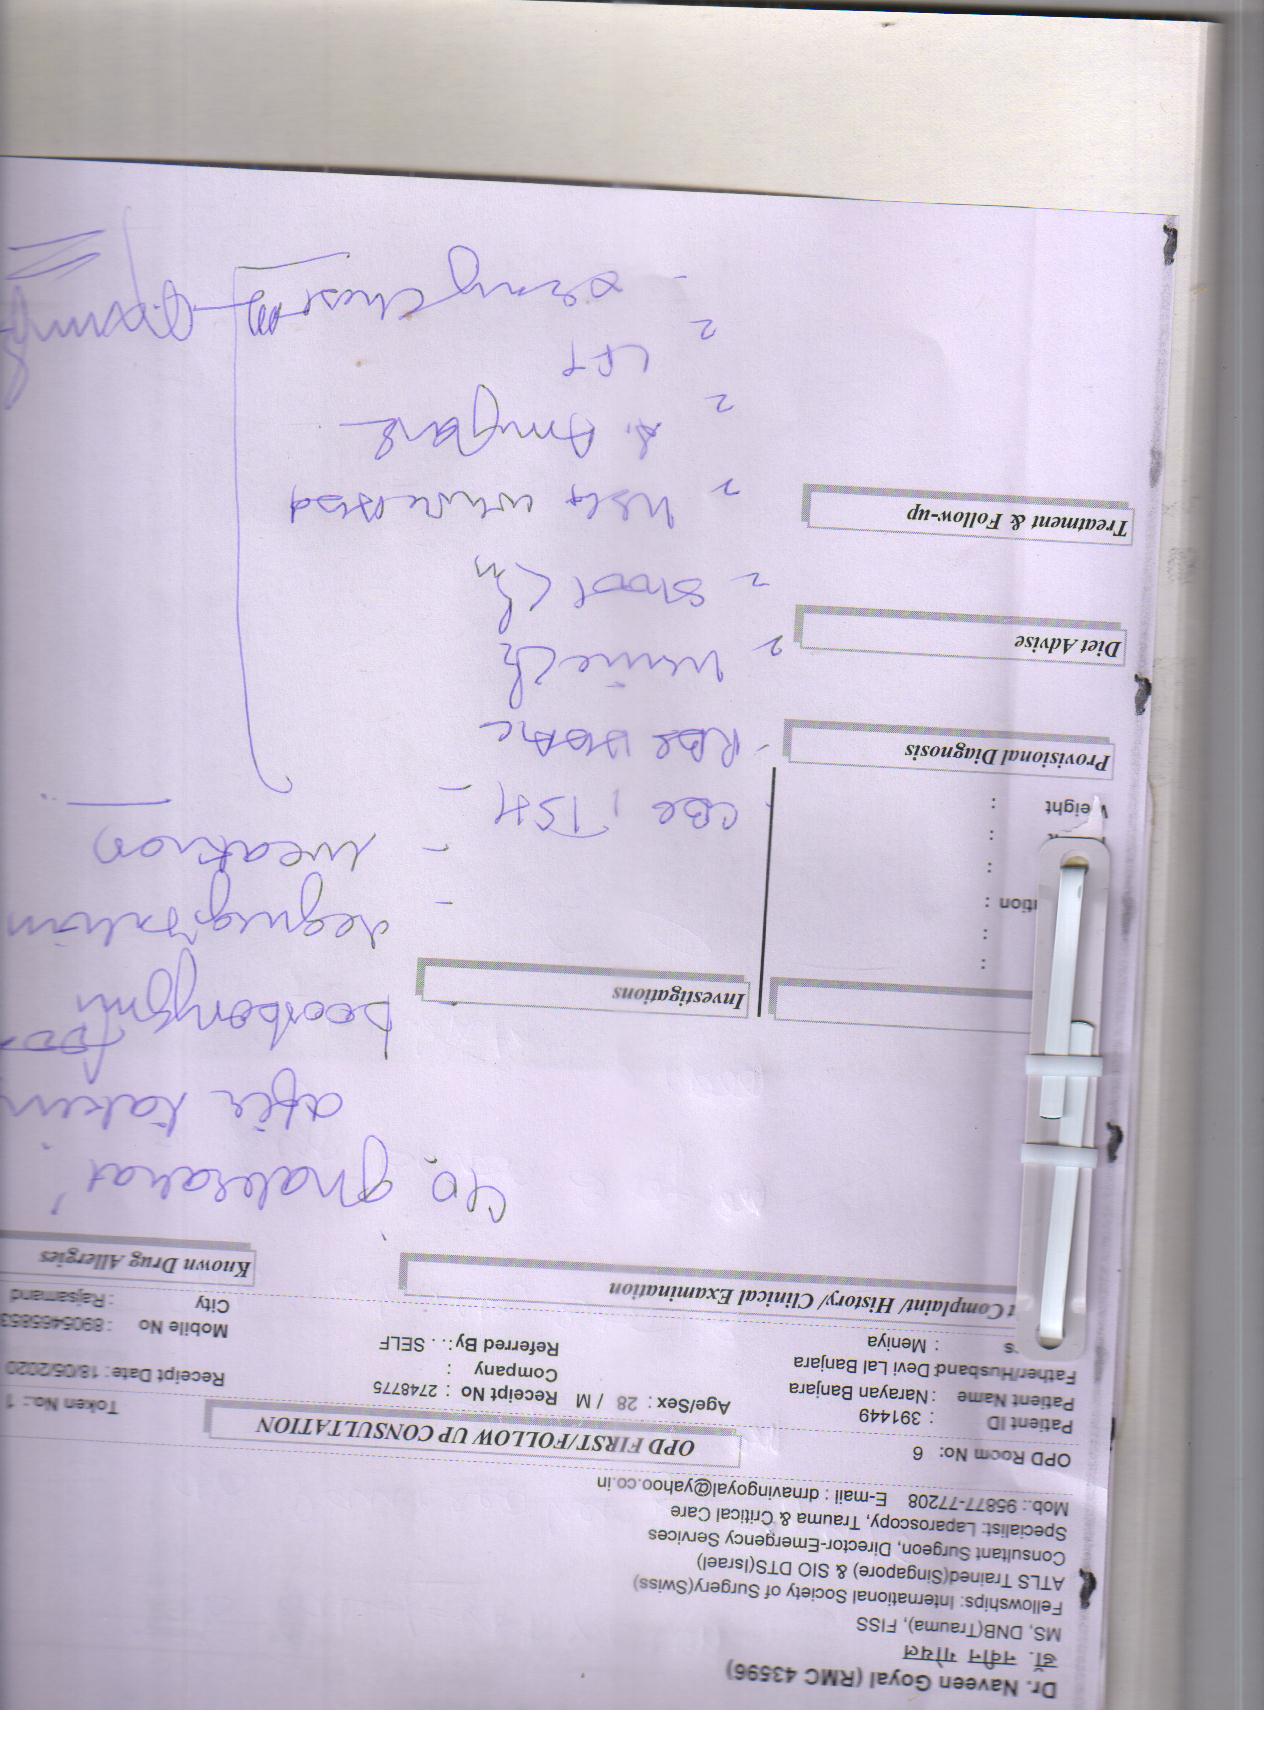 Dr. Naveen Goyal (RMC 43596)
डॉ. नवीन गोयल
MS, DNB(Trauma), FISS
Fellowships: International Society of Surgery(Swiss)
ATLS Trained(Singapore) & SIO DTS(Israel)
Consultant Surgeon, Director-Emergency Services
Specialist: Laparoscopy, Trauma & Critical Care
Mob.: 95877-77208 E-mail : drnavingoyal@yahoo.co.in
OPD Room No: 6
OPD FIRST/FOLLOW UP CONSULTATION
Token No.: 1
Patient ID : 391449
Patient Name : Narayan Banjara
Age/Sex : 28 / M
Receipt No : 2748775
Receipt Date : 18/05/2020
Father/Husband: Devi Lal Banjara
Company :
Mobile No : 8905465853
: Meniya
Referred By : . . SELF
City : Rajsamand
Complaint/ History/ Clinical Examination
Known Drug Allergies
C/o
after taking
food
Investigations
CBC, TSH
RBS HbA1c
Urine
Stool
USG whole abd
S. Amylase
LFT
Xray Chest
:
:
:
:
:
Weight :
Provisional Diagnosis
Diet Advise
Treatment & Follow-up